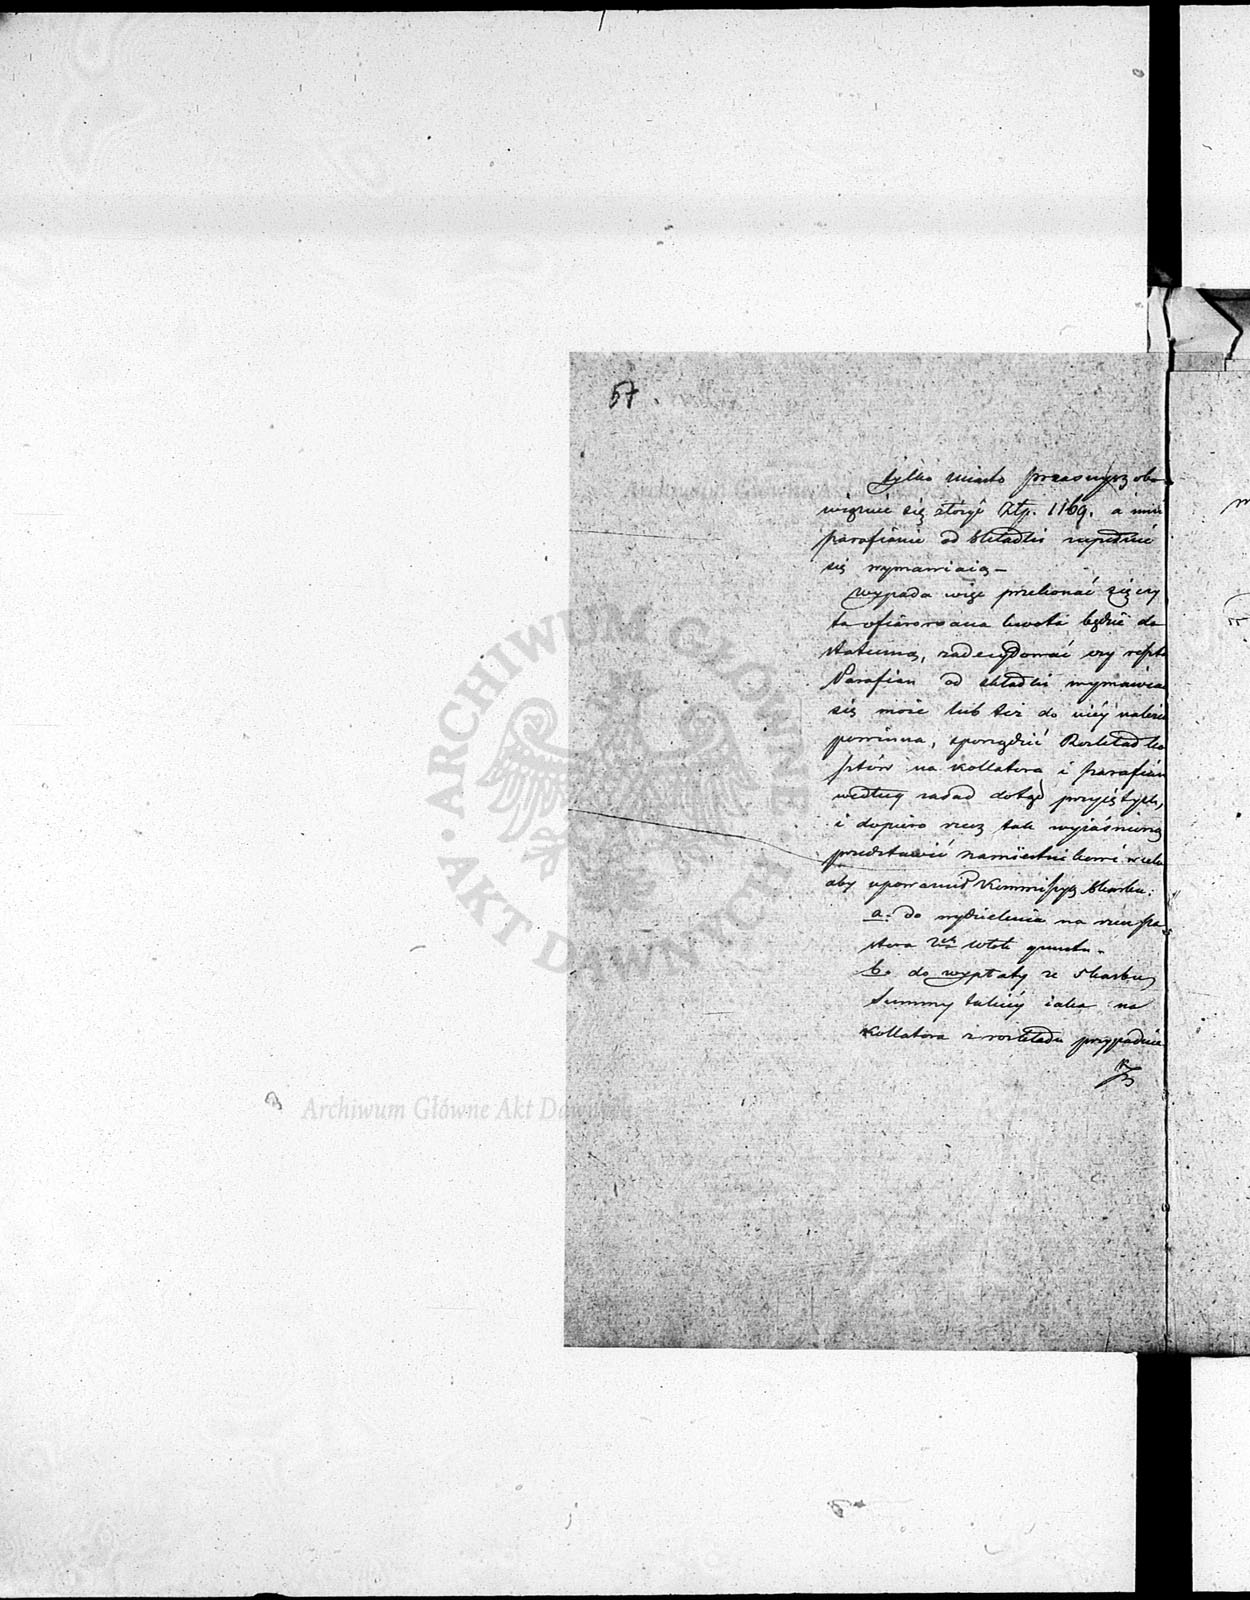 57.
tylko miasto Przasnysz obo
wiązuie się złożyć Złp. 1169. a inni
parafianie od składki zupełnie
się wymawiaią –
Wypada więc przekonać się czy
ta ofiarowana kwota będzie do
stateczną, zadecydować czy reszta
Parafian od składki wymawiać
się może lub też do niéy należeć
powinna, sporządzić Rozkład ko
sztów na Kollatora i parafian
według zasad dotąd przyiętych,
i dopiero rzecz tak wyiaśnioną
przedstawić Namiestnikowi w celu
aby upoważnił Kommissyą Skarbu:
a. do wydzielenia na rzecz Pa
stora włók gruntu.
b. do wypłaty ze Skarbu
Summy takiéy iaka na
Kollatora z rozkładu przypadnie
ARCHIWUM GŁÓWNE AKT DAWNYCH
Archiwum Główne Akt Dawnych